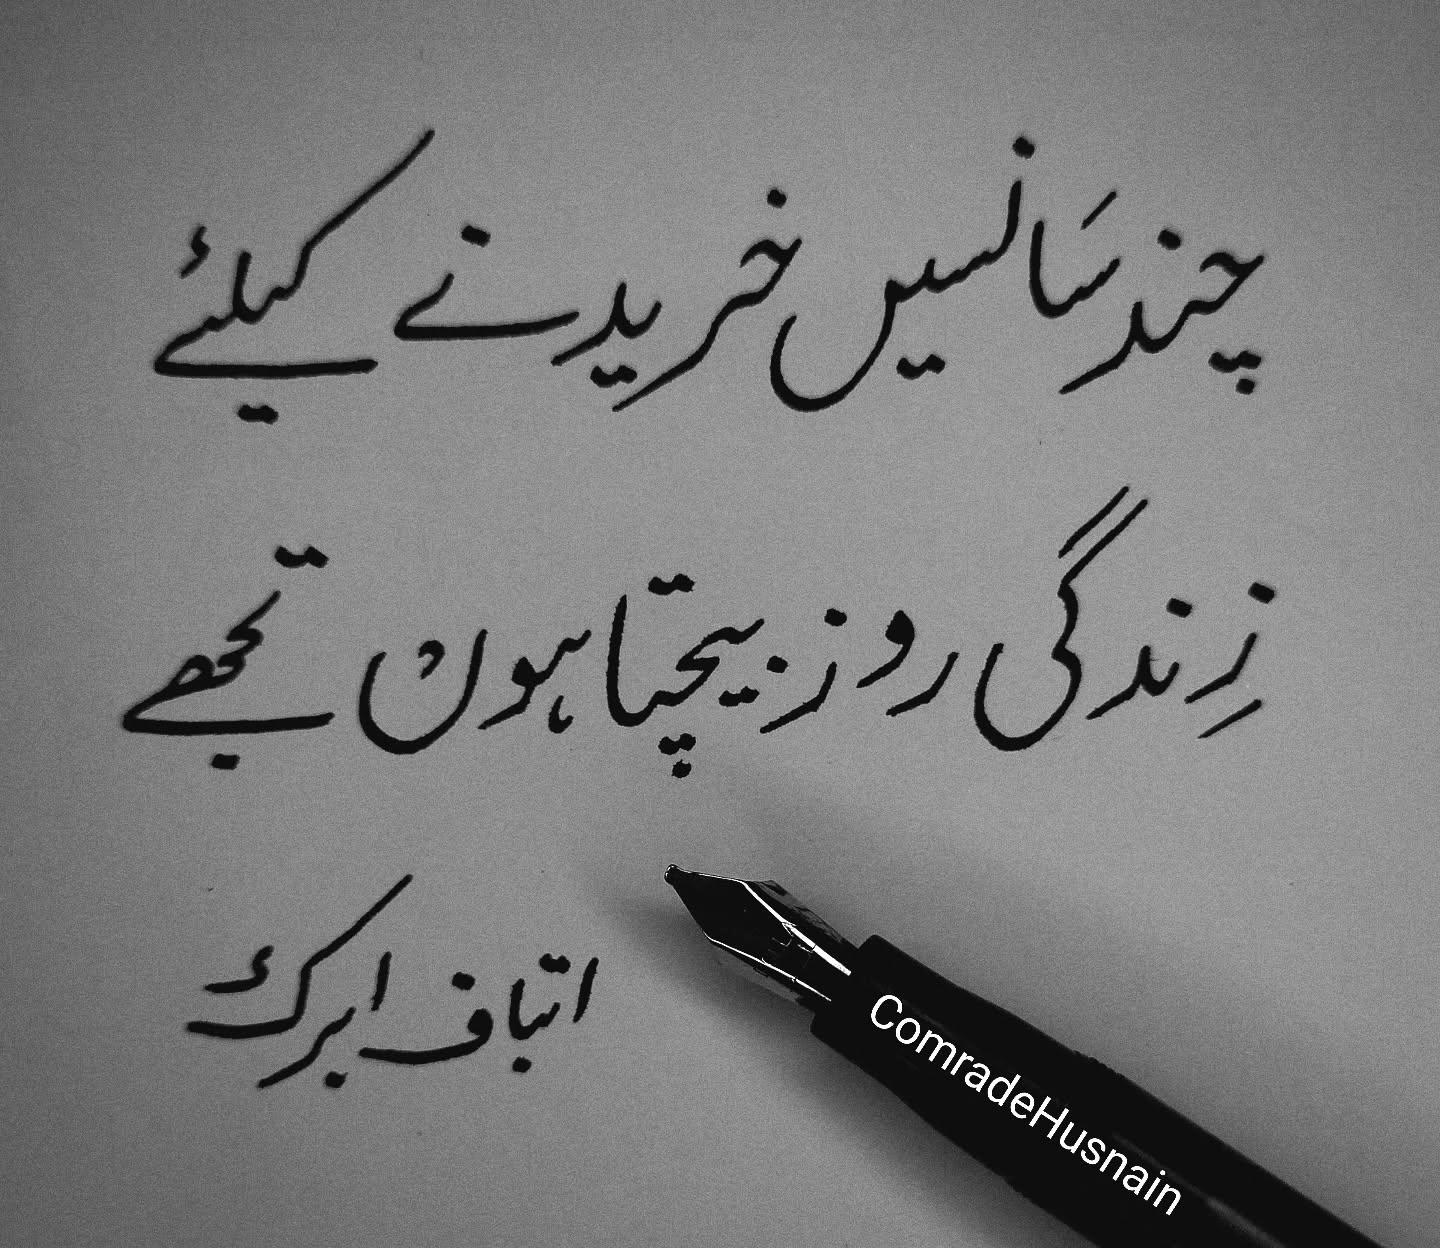 چند سَانسیں خریدنے کیلئے
زِندگی روز بیچتا ہوں تجھے
اتباف ابرک
ComradeHusnain